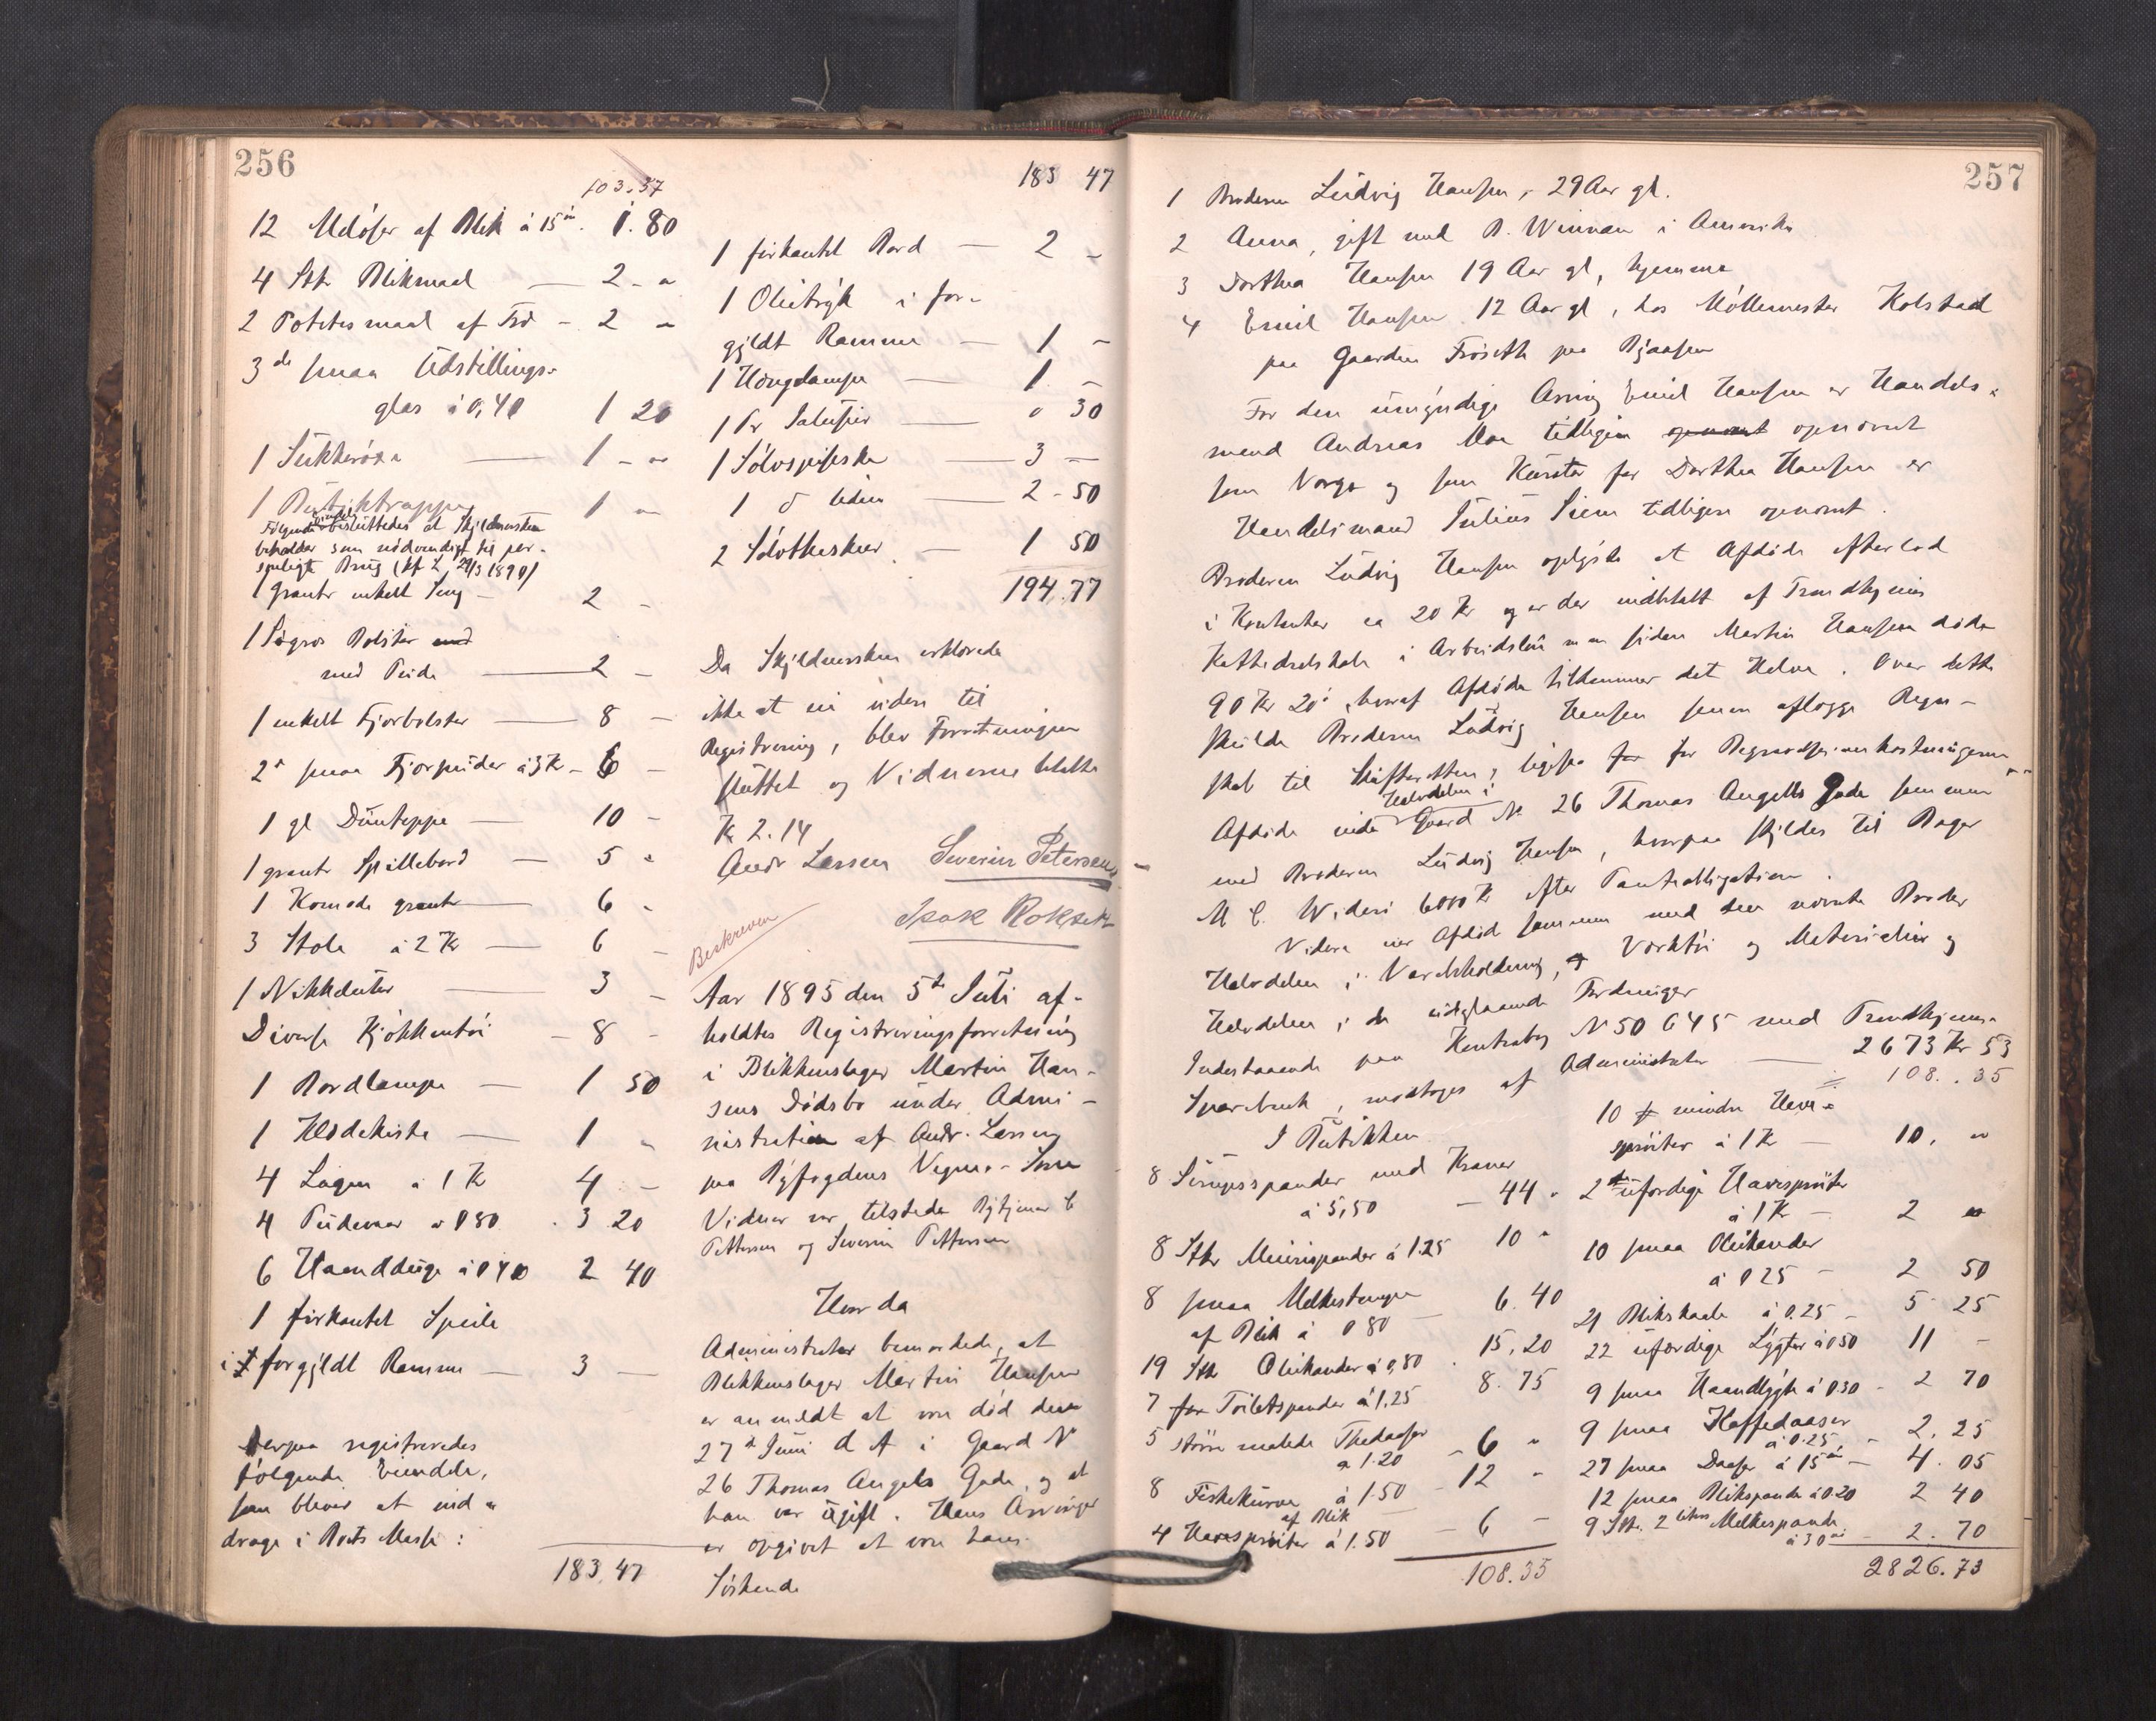 256
103.37
12 Mdóser af Blik á 15 ør. 1.80
4 Stk Blikmaal — 2 - "
2 Potetesmaal af Træ - 2 "
3 do smaa Udstillings-
glas á 0,40 1 20
1 Sukkerøxe — 1 - "
1 Butiktrappe 1 "
Følgende besluttedes at Skjldnersken
beholder som nödvendigt til per-
sonligt Brug (kf L 29/3 1890)
1 grant enkelt Seng — 2 -
1 Søgræs Bolster
med Pude — 2 -
1 enkelt Fjærbolster — 8 -
2 smaa Fjærpuder á 3 Kr - 6 -
1 gl Dünteppe — 10 -
1 grant Spillebord — 5 "
1 Komode grant — 6 -
3 Stole á 2 Kr — 6 -
1 Nikkeluhr — 3 -
Diverse Kjökkentöi - 8 -
1 Bordlampe — 1 50
1 Klædekiste — 1 "
4 Lagen á 1 Kr 4 -
4 Pudevar á 0 80 3 20
6 Haandduge á 0 40 2 40
1 firkantet Speile
i forgyldt Ramme — 3 —
Derpaa registreredes
følgende Eiendele,
som bliver at ind-
drage i Boets Masse:
183.47
183 47
1 firkantet Bord — 2 -
1 Olietryk i for-
gyldt Ramme — 1 -
1 Hængelampe — 1 -
1 Pr Salusier — 0 30
1 Sölvspiseske — 3 —
1 d liden — 2 - 50
2 Sölvtheskeer — 1 50
194.77
Da Skjldnersken erklærede
ikke at eie videre til
Registrering, blev Forretningen
sluttet og Vidnerne betalte
Kr 2.14
Andr Larsen Severin Petersen
Isak Rokseth
Beskreven
Aar 1895 den 5te Juli af-
holdtes Registreringsforretning
i Blikkenslager Martin Han-
sens Dödsbo under Admi-
nistration af Andr. Larsen
paa Byfogdens Vegne. - Som
Vidner var tilstede Bytjener C
Pettersen og Severin Pettersen
Hvorda
Administrator bemærkede, at
Blikkenslager Martin Hansen
er anmeldt at være död den
27de Juni d A i Gaard No
26 Thomas Angels Gade, og at
han var ugift. Hans Arvinger
er opgivet at være hans
Söskende
257
1 Broderen Ludvig Hansen, 29 Aar gl.
2 Anna, gift med B. Winnan i Amerika
3 Dorthea Hansen 19 Aar gl, hjemme
4 Emil Hansen 12 Aar gl, hos Möllemester Kolstad
paa Gaarden Fröseth paa Bjaasen
For den umyndige Arving Emil Hansen er Handels-
mand Andreas Moe tidligere opnævnt
som Værge og som Kurator for Dorthea Hansen er
Handelsmand Julius Siem tidligere opnævnt.
Broderen Ludvig Hansen oplyste at Afdöde efterlod
i Kontanter ca 20 Kr og er der indbetalt af Trondhjems
Kathedralskole i Arbeidslön m m siden Martin Hansen döde
90 Kr 20 ö, hvoraf Afdöde tilkommer det Halve. Over dette
skulde Broderen Ludvig Hansen senere aflægge Regn-
skab til Skifteretten, ligesaa for Begravelsesomkostningerne
Afdöde eiede Halvdelen i Gaard No 26 Thomas Angells Gade sammen
med Broderen Ludvig Hansen, hvorpaa skyldes til Bager
M C. Wideri 6000 Kr efter Pantobligation.
Videre eier Afdöd sammen med den nævnte Broder
Halvdelen i Varebeholdning, Værktöi og Materialier og
Halvdelen i de udestaaende Fordringer
Indestaaende paa Kontrabog No 50645 med Trondhjems
Sparebank, modtoges af Administrator — 2673 Kr 53
I Butikken
8 Sirupsspander med Kraner
á 5,50 — 44 "
8 Stk Meierispander á 1.25 10 "
8 smaa Melkestamper
af Blik á 0 80 — 6.40
19 Stk Oliekander á 0,80 15,20
7 Toiletspander á 1,25 8.75
5 større malede Thedaaser
á 1.20 - 6 "
8 Fiskekurve á 1.50 - 12 "
af Blik
4 Havespröiter á 1.50 — 6 —
108.35
108..35
10 mindre Have-
spröiter á 1 Kr — 10, "
2 ufærdige Havespröiter
á 1 Kr — 2 "
10 smaa Oliekander
á 0 25 — 2 50
21 Blikskaale á 0.25 — 5 25
22 ufærdige Lygter á 0 50 11 -
9 smaa Haandlygte á 0.30 - 2 70
9 smaa Kaffedaaser
á 0.25 - 2.25
27 smaa Daaser á 15 ör — 4.05
12 smaa Blikspande á 0.20 2 40
9 Stk. 2 liters Melkespande
á 30 ör — 2.70
2826.73